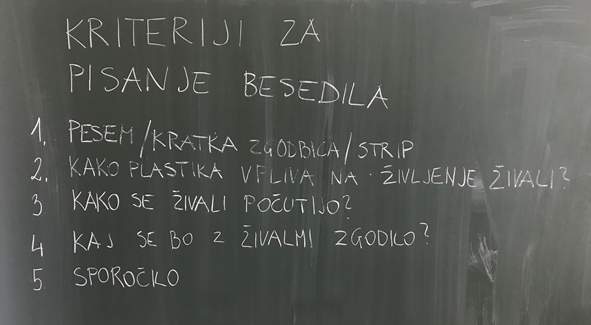 KRITERIJI ZA
PISANJE BESEDILA
1. PESEM/KRATKA ZGODBICA/STRIP
2. KAKO PLASTIKA VPLIVA NA ŽIVLJENJE ŽIVALI?
3 KAKO SE ŽIVALI POČUTIJO?
4 KAJ SE BO Z ŽIVALMI ZGODILO?
5. SPOROČILO